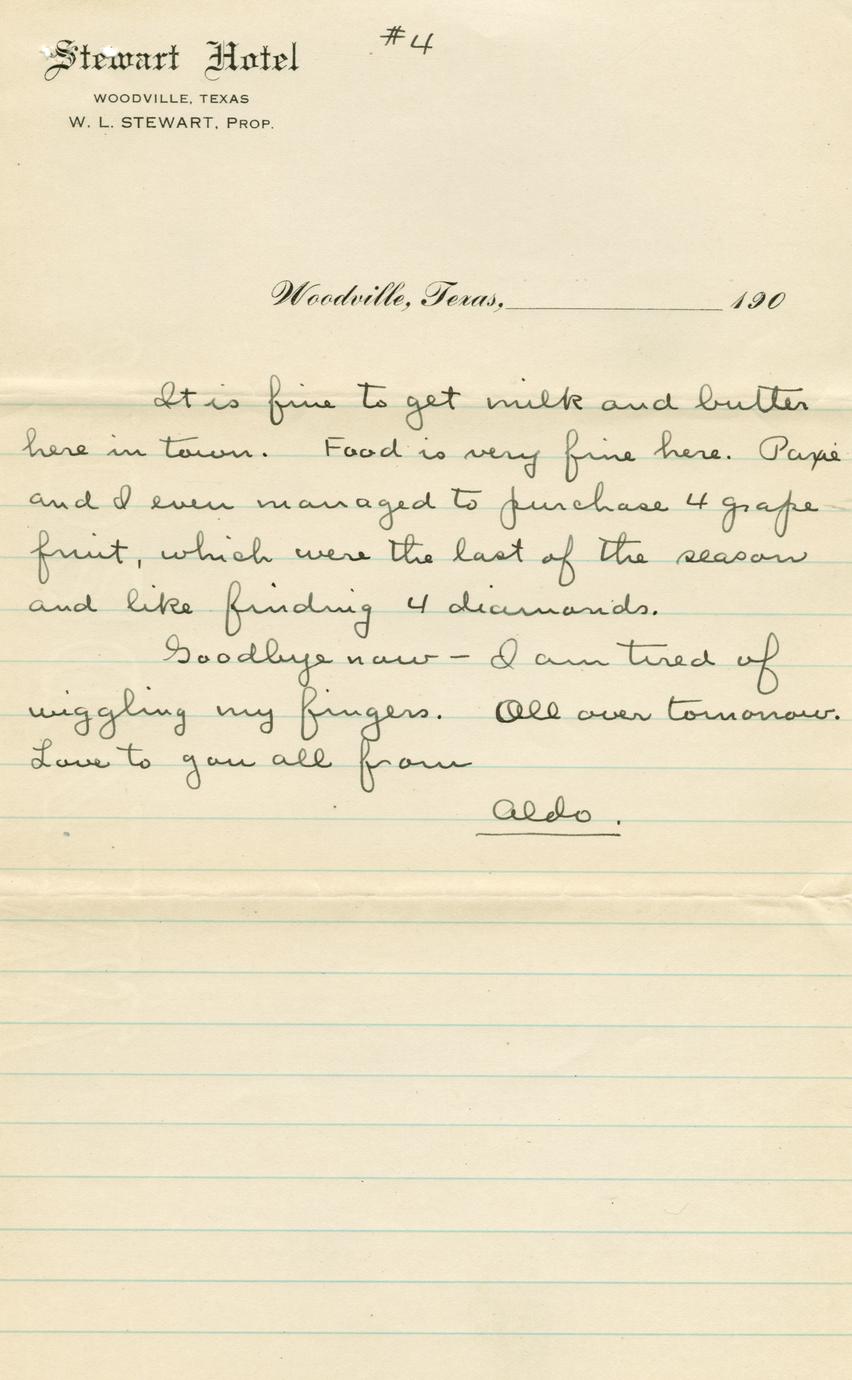 #4
Stewart Hotel
WOODVILLE, TEXAS
W. L. STEWART, PROP.
Woodville, Texas, 190
It is fine to get milk and butter
here in town. Food is very fine here. Paxie
and I even managed to purchase 4 grape
fruit, which were the last of the season
and like finding 4 diamonds.
Goodbye now – I am tired of
wiggling my fingers. All over tomorrow.
Love to you all from
Aldo.